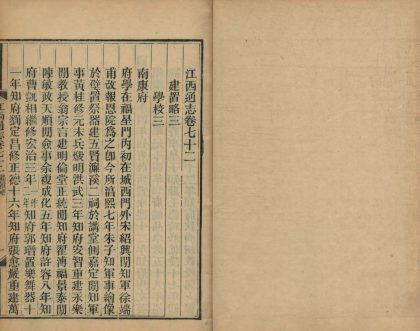 江西通志卷七十二
建置略三
學校三
南康府
府學在福星門內初在城西門外宋紹興間知軍徐端
甫改報恩院爲之卽今所淳熙七年朱子知軍事繪像
於壁置祭器建五賢濂溪二祠於講堂側嘉定間知軍
事黃桂修元末兵燬明洪武三年知府安智重建永樂
間教授翁宗言建明倫堂正統間知府翟溥福景泰間
陳敏政天順間僉事余復成化五年知府許容八年知
府曹凱相繼修宏治三年 知府郭瑨置樂舞器十
一年知府劉定昌修正德十六年知府張愈嚴重建萬